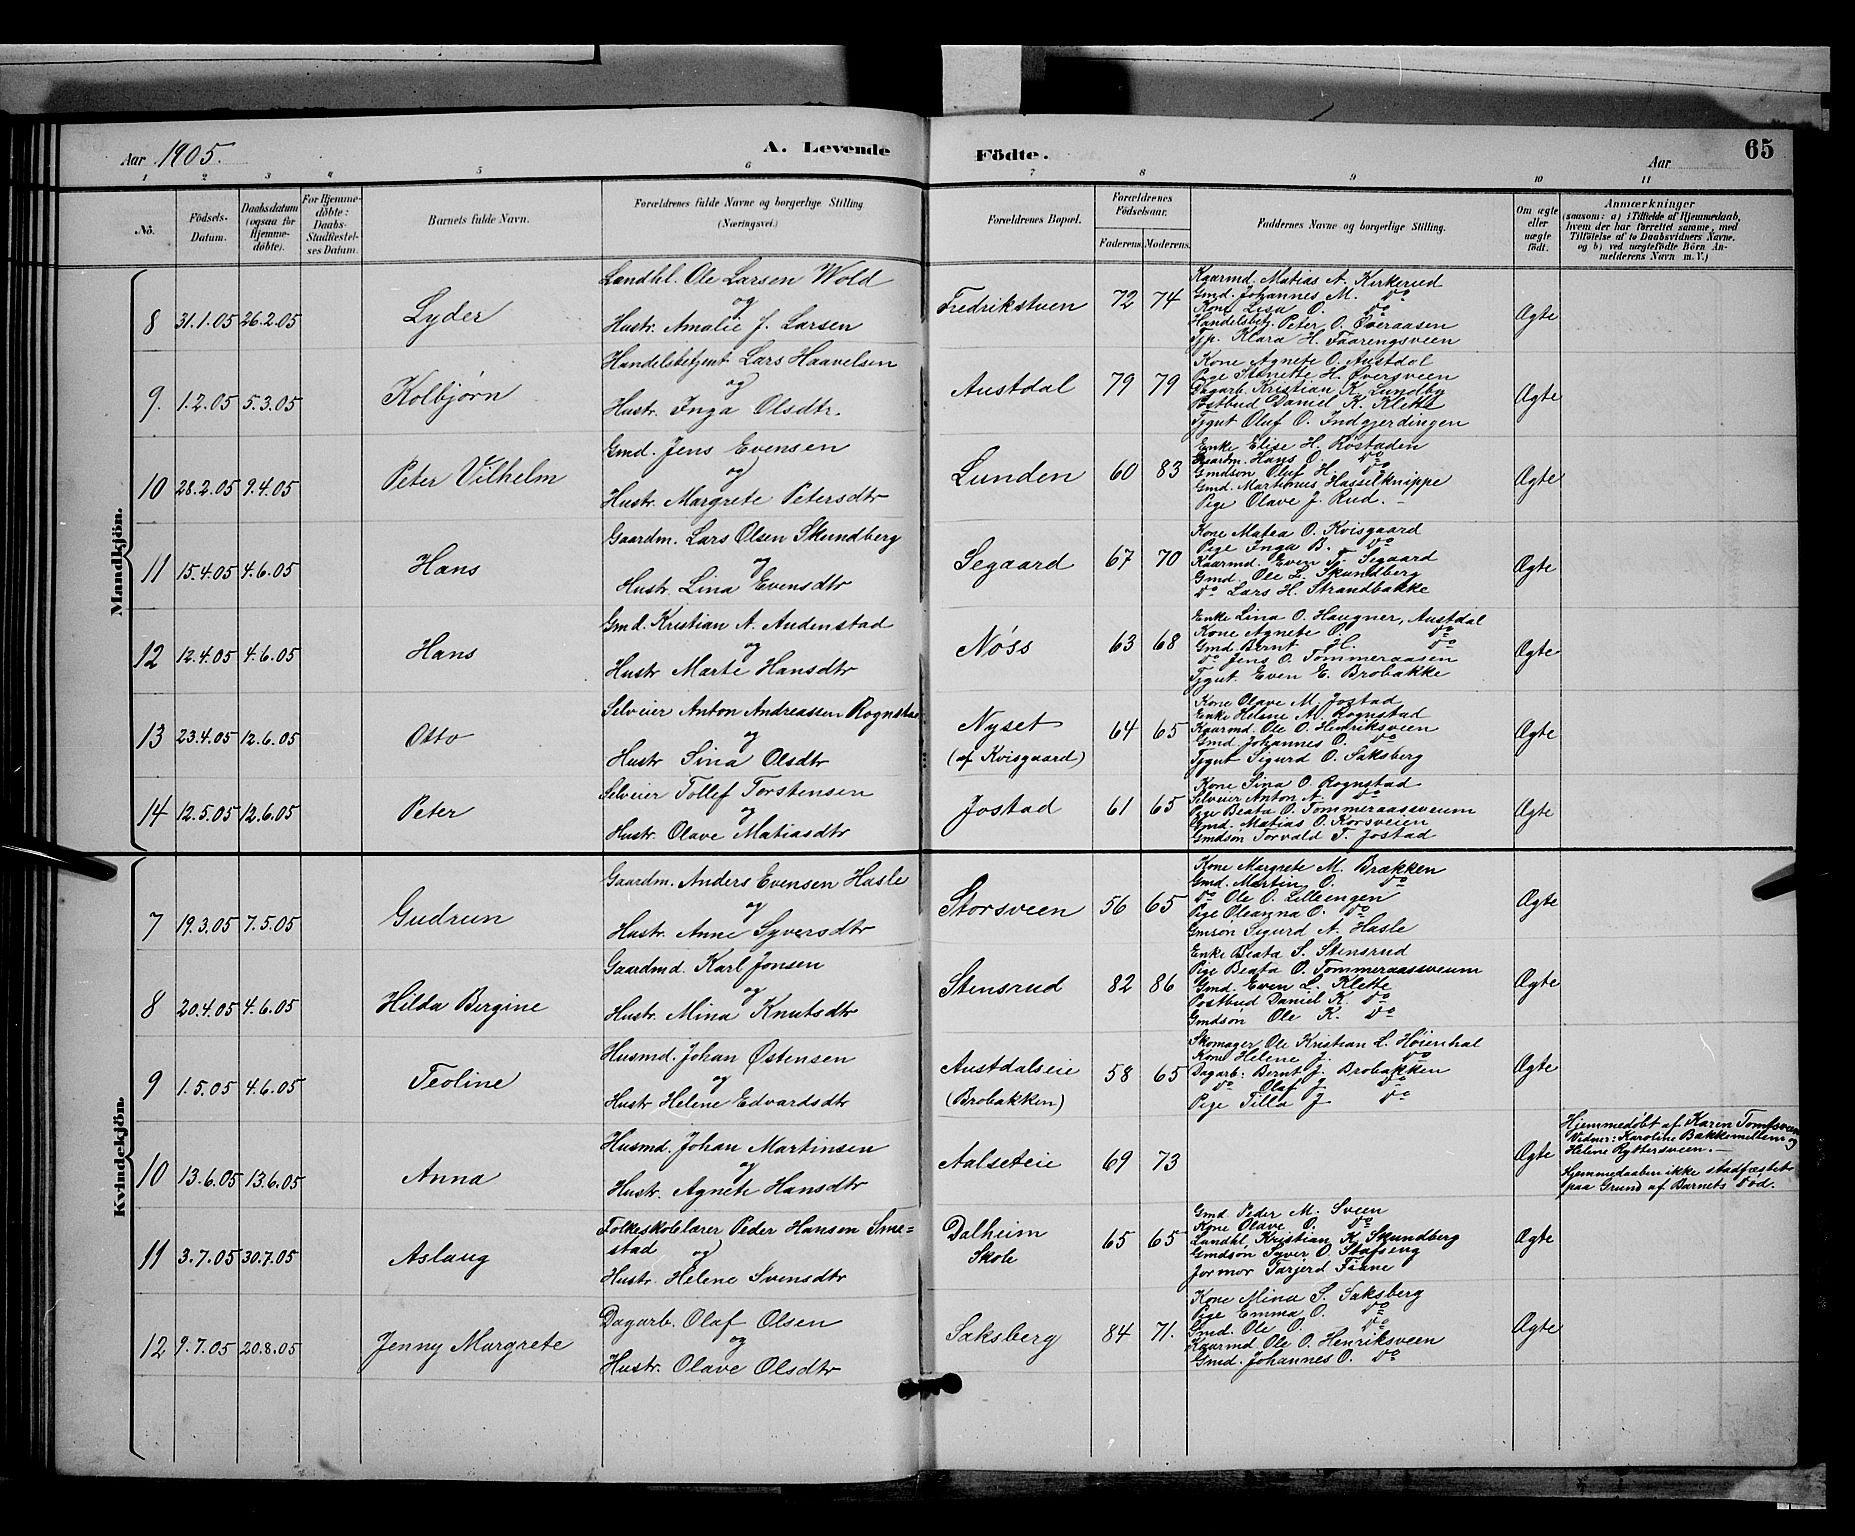 Aar 1905.
A. Levende Födte.
Aar
65
1 2 3 4 5 6 7 8 9 10 11
Nö.
Födsels-Datum.
Daabsdatum (ogsaa for Hjemmedöbte).
For Hjemmedöbte: Daabs-Stadfæstelses Datum.
Barnets fulde Navn.
Forældrenes fulde Navne og borgerlige Stilling. (Næringsvei.)
Forældrenes Bopæl.
Forældrenes Födselsaar.
Faderens. Moderens.
Faddernes Navne og borgerlige Stilling.
Om ægte eller uægte födt.
Anmærkninger
(saasom: a) i Tilfælde af Hjemmedaab, hvem der har forrettet samme, med Tilföielse af to Daabsvidners Navne, og b) ved uægtefödte Börn Anmelderens Navn m. V.)
Mandkjön.
8 31.1.05 26.2.05 Lyder
Landhl. Ole Larsen Wold
og
Hustr. Amalie J. Larsen
Fredrikstuen 72 74
Kaarmd. Matias A. Kirkerud
Gmd. Johannes M. do
Kone Lisa O. do
Handelsbetj. Peter O. Øveraasen
Tjp. Klara H. Faarengsveen
Ægte
9. 1.2.05 5.3.05 Kolbjørn
Handelsbetjent Lars Haavelsen
og
Hustr. Inga Olsdtr.
Austdal 79 79
Kone Agnete O. Austdal
Pige Jenette H. Øvergveen
Dagarb. Kristian K. Lundby
Postbud Daniel K. Klette
Tjgut Oluf O. Indgjerdingen
Ægte
10 28.2.05 9.4.05 Peter Vilhelm
Gmd. Jens Evensen
og
Hustr. Margrete Petersdtr
Lunden 60 83
Enke Elise H. Røstaden
Gaardm. Hans O. do
Gmdsøn Oluf H. do
Gmd. Martinus Hasselknippe
Pige Olave J. Rud.
Ægte
11 15.4.05 4.6.05 Hans
Gaardm. Lars Olsen Skundberg
og
Hustr. Lina Evensdtr
Segaard 67 70
Kone Matea O. Kvisgaard
Pige Inga B. do
Kaarmd. Even T. Segaard
Gmd. Ole L. Skundberg
do Lars H. Strandbakke
Ægte
12 12.4.05 4.6.05 Hans
Gmd. Kristian A. Audenstad
og
Hustr Marte Hansdtr
Nøss 63 68
Enke Lina O. Haugner, Austdal
Kone Agnete O. do
Gmd Bernt H. do
do Jens O. Tommeraasen
Tjgut. Even E. Brobakke
Ægte
13 23.4.05 12.6.05 Otto
Selveier Anton Andreassen Rognstad
og
Hustr Sina Olsdtr
Nyset
(af Kvisgaard)
64 65
Kone Olave M. Jostad
Enke Helene M. Rognstad
Kaarmd. Ole O. Henriksveen
Gmd Johannes O. do
Tjgut Sigurd O. Saksberg
Ægte
14 12.5.05 12.6.05 Peter
Selveier Tollef Torstensen
og
Hustr. Olave Matiasdtr
Jostad 61 65
Kone Sina O. Rognstad
Selveier Anton A. do
Pige Beata O. Tommeraassveum
Gmd. Matias O. Korsveien
Gmdsøn Torvald T. Jostad
Ægte
Kvindekjön.
7 19.3.05 7.5.05 Gudrun
Gaardm. Anders Evensen Hasle
og
Hustr. Anne Syversdtr
Storsveen 56 65
Kone Margrete M. Brækken
Gmd. Martin O. do
do Ole O. Lilleengen
Pige Oleanna O. do
Gmsøn Sigurd A. Hasle
Ægte
8 20.4.05 4.6.05 Hilda Bergine
Gaardmd. Karl Jonsen
og
Hustr. Mina Knutsdtr
Stensrud 82 86
Enke Beata S. Stensrud
Pige Beata O. Tommeraassveum
Gmd. Even L. Klette
Postbud Daniel K. do
Gmdsøn Ole K. do
Ægte
9 1.5.05 4.6.05 Teoline
Husmd. Johan Østensen
og
Hustr Helene Edvardsdtr
Austdalseie
(Brobakken)
58 65
Skomager Ole Kristian L. Høienhal
Kone Helene J. do
Dagarb: Bernt J. Brobakken
do Olaf J. do
Pige Tilla J do
Ægte
10 13.6.05 13.6.05 Anna
Husmd. Johan Martinsen
og
Hustr. Agnete Hansdtr
Aalseteie 69 73
Ægte
Hjemmedøbt af Karen Tomtsveen
Vidner: Karoline Bakkemellem og
Helene Ryttersveen. —
Hjemmedaaben ikke stadfæstet
paa Grund af Barnets Død.
11 3.7.05 30.7.05 Aslaug
Folkeskolelærer Peder Hansen Sme=
stad og
Hustr. Helene Svensdtr
Dalheim
Skole
65 65
Gmd Peder M. Sveen
Kone Olave O. do
Landhl Kristian K. Skundberg
Gmdsøn Syver O. Stafseng
Jormor Tarjerd Fiane
Ægte
12 9.7.05 20.8.05 Jenny Margrete
Dagarb. Olaf Olsen
og
Hustr. Olave Olsdtr
Saksberg 84 71.
Kone Mina S. Saksberg
Pige Emma O. do
Gmd. Ole O. do
Kaarmd Ole O. Henriksveen
Gmd. Johannes O. do
Ægte